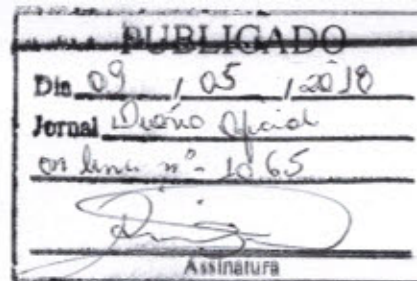 PUBLICADO
Dia 09 / 05 / 2018
Jornal Diário Oficial
on line nº 1065
Assinatura